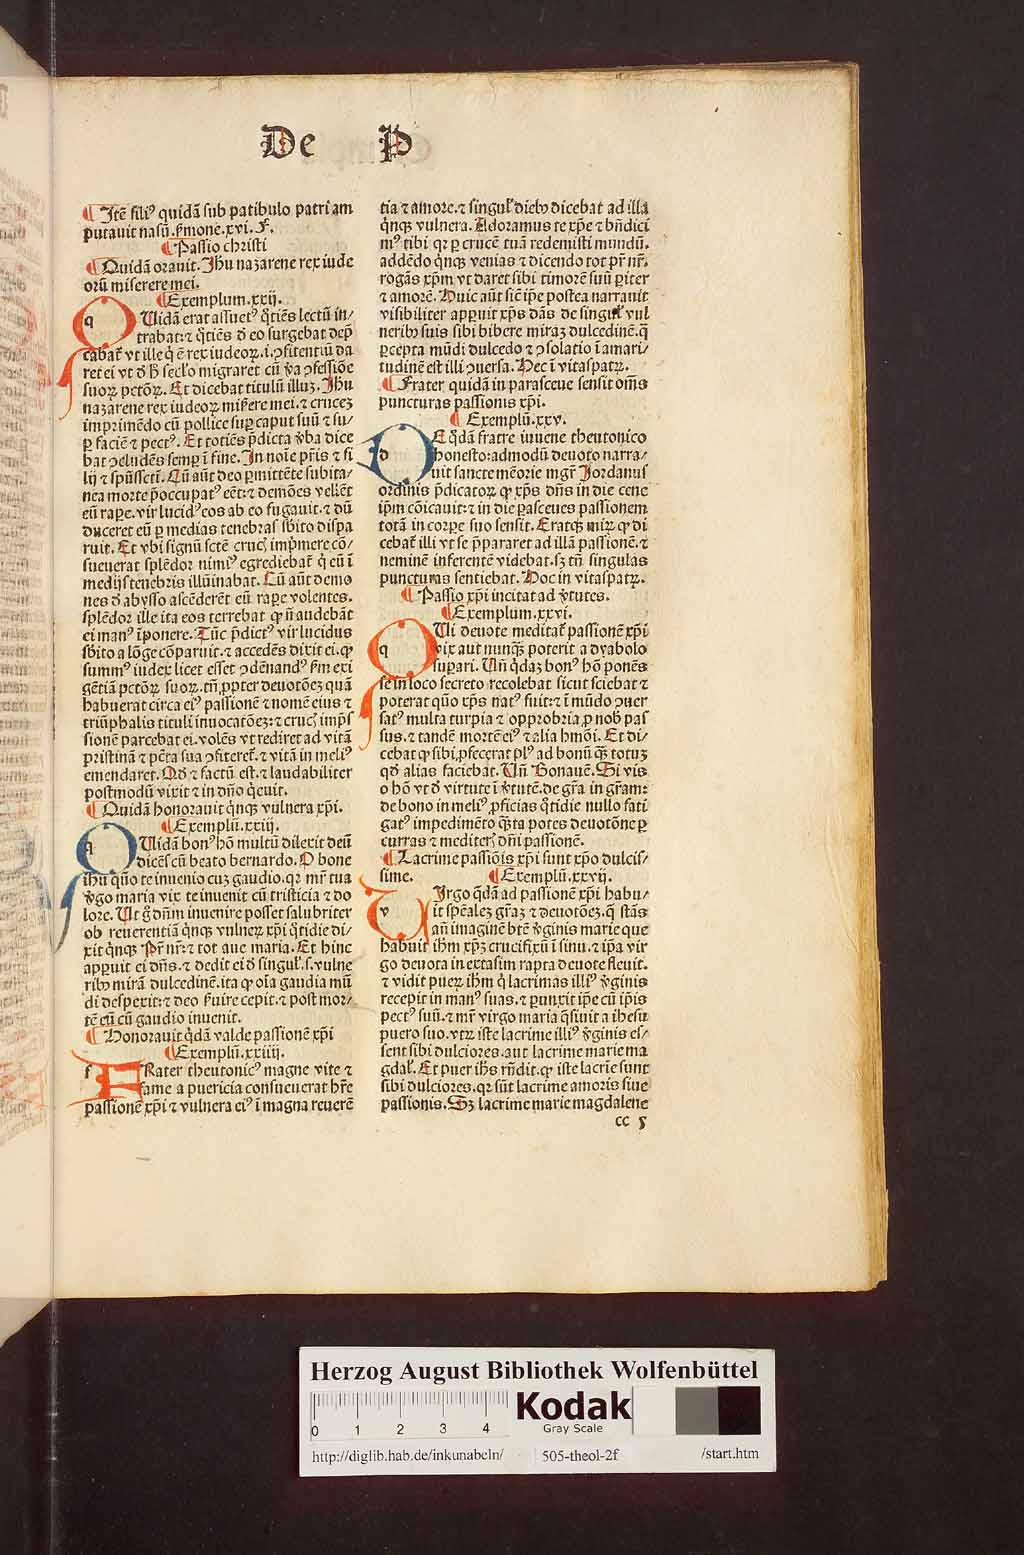 De P
¶ Itē filiꝰ quidā sub patibulo patri am
putauit nasū. ẜmone.xvi. F.
¶ Passio christi
¶ Quidā orauit. Ihu nazarene rex iude
orū miserere mei.
¶ Exemplum.xxij.
q Uidā erat assuetꝰ q̄tiēs lectū in/
trabat:⁊ q̄tiēs d̄ eo surgebat dep̄
cabat̄ vt ille q̇ ē rex iudeoꝝ.i.ꝯfitentiū da
ret ei vt d̄ h̄ sec̄lo migraret cū v̄a ꝯfessiōe
suoꝝ pctōꝝ. Et dicebat titulū illuꝫ. Ihu
nazarene rex iudeoꝝ miẜere mei.⁊ cruceꝫ
imprimēdo cū pollice suꝑ caput suū ⁊ su/
ꝑ faciē ⁊ pectꝰ. Et totiēs p̄dicta v̄ba dice
bat ꝯeludēs semꝑ ī fine. In noīe pr̄is ⁊ fi
lij ⁊ spūssct̄i. Cū aūt deo ꝑmittēte subita/
nea morte p̄occupatꝰ eēt:⁊ demōes vellēt
eū raꝑe. vir lucidꝰ eos ab eo fugauit.⁊ dū
duceret eū ꝑ medias tenebras sb̄ito dispa
ruit. Et vbi signū sctē crucꝭ imp̄mere cō/
sueuerat splēdor nimiꝰ egrediebat̄ q̇ eū ī
medijs tenebris illūinabat. Cū aūt demo
nes d̄ abysso ascēderēt eū raꝑe volentes.
splēdor ille ita eos terrebat ꝙ nō audebāt
ei manꝰ īponere. Tūc p̄dictꝰ vir lucidus
sb̄ito a lōge cōparuit.⁊ accedēs dixit ei.ꝙ
summꝰ iudex licet esset ꝯdēnandꝰ ẜm exi
gētiā pctōꝝ suoꝝ.tn̄.ꝓpter deuotōeꝫ quā
habuerat circa eiꝰ passionē ⁊ nomē eius ⁊
triūphalis tituli inuocatōeꝫ:⁊ crucꝭ imp̄s
sionē parcebat ei.volēs vt rediret ad vitā
pristinā ⁊ pc̄ta sua ꝯfiteret̄.⁊ vitā in meliꝰ
emendaret. Qđ ⁊ factū est.⁊ laudabiliter
postmodū vixit ⁊ in dn̄o q̇euit.
¶ Quidā honorauit q̇nqꝫ vulnera xp̄i.
¶ Exemplū.xxiij.
q Uidā bonꝰ hō multū dilexit deū
dicēs cū beato bernardo. O bone
ihu quō te inuenio cuꝫ gaudio.qꝛ mr̄ tua
v̄go maria vix te inuenit cū tristicia ⁊ do
lore. Ut g̊ dn̄m inuenire posset salubriter
ob reuerentiā q̇nqꝫ vulneꝝ xp̄i q̇tidie di/
xit q̇nqꝫ Pr̄ nr̄:⁊ tot aue maria. Et hinc
apꝑuit ei dn̄s.⁊ dedit ei d̄ singul̓.s.vulne
ribꝰ mirā dulcedinē.ita ꝙ oīa gaudia mū
di despexit:⁊ deo ẜuire cepit.⁊ post mor/
tē cū cū gaudio inuenit.
¶ Honorauit q̇dā valde passionē xp̄i
¶ Exemplū.xxiiij.
f FRater theutonicꝰ magne vite ⁊
fame a puericia consueuerat hr̄e
passionē xp̄i ⁊ vulnera eiꝰ ī magna reuerē
tia ⁊ amore.⁊ singul̓ diebꝰ dicebat ad illa
q̇nqꝫ vulnera. Adoramus te xp̄e ⁊ bn̄dici
mꝰ tibi qꝛ ꝑ crucē tuā redemisti mundū.
addēdo q̇nqꝫ venias ⁊ dicendo tot pr̄ nr̄.
rogās xp̄m vt daret sibi timorē suū ꝑiter
⁊ amorē. Huic aūt sic̄ ip̄e postea narrauit
visibiliter apꝑuit xp̄s dās de singul̓ vul
neribꝰ suis sibi bibere miraꝫ dulcedinē.q̄
ꝑcepta mūdi dulcedo ⁊ ꝯsolatio ī amari/
tudinē est illi ꝯuersa. Hec ī vitaspatꝝ.
¶ Frater quidā in parasceue sensit oms̄
puncturas passionis xp̄i.
¶ Exemplū.xxv.
d E q̇dā fratre iuuene theutonico
honesto:admodū deuoto narra/
uit sancte mēorie mgr̄ Jordanus
ordinis p̄dicatoꝝ ꝙ xp̄s dn̄s in die cene
ip̄m cōicauit:⁊ in die ꝑasceues passionem
totā in corꝑe suo sensit. Eratqꝫ miꝝ ꝙ di
cebat̄ illi vt se p̄pararet ad illā passionē.⁊
neminē inferentē videbat.sꝫ tn̄ singulas
puncturas sentiebat. Hoc in vitaspatꝝ.
¶ Passio xp̄i incitat ad v̄tutes.
¶ Exemplum.xxvi.
q Ui deuote meditat̄ passionē xp̄i
vix aut nunqꝫ poterit a dyabolo
suꝑari. Un̄ q̇daꝫ bonꝰ hō ponēs
se in loco secreto recolebat sicut sciebat ⁊
poterat quō xp̄s natꝰ fuit:⁊ ī mūdo ꝯuer
satꝰ multa turpia ⁊ opprobria ꝓ nob̓ pas
sus.⁊ tandē mortē eiꝰ ⁊ alia hmōi. Et di/
cebat ꝙ sibi ꝓfecerat plꝰ ad bonū q̄ꝫ totuꝫ
qđ alias faciebat. Un̄ Bonauē. Si vis
o hō vt d̄ virtute ī v̄tutē.de gr̄a in gr̄am:
de bono in meliꝰ ꝓficias q̇tidie nullo fati
gatꝰ impedimēto q̄ꝫta potes deuotōne ꝑ
curras ⁊ mediterꝭ dn̄i passionē.
¶ Lacrime passiōis xp̄i sunt xp̄o dulcis/
sime. ¶ Exemplū.xxvij.
v Irgo q̇dā ad passionē xp̄i habu/
it spēaleꝫ gr̄aꝫ ⁊ deuotōeꝫ.q̄ stās
an̄ imaginē btē v̄ginis marie que
habuit ihm xp̄ꝫ crucifixū ī sinu.⁊ ip̄a vir
go deuota in extasim rapta deuote fleuit.
⁊ vidit pueꝝ ihm q̇ lacrimas illiꝰ v̄ginis
recepit in manꝰ suas.⁊ ꝑunxit ip̄e cū ip̄is
pectꝰ suū.⁊ mr̄ virgo maria q̄siuit a ihesu
puero suo.vtꝝ iste lacrime illiꝰ v̄ginis es/
sent sibi dulciores.aut lacrime marie ma
gdal̓. Et puer ihs rn̄dit.ꝙ iste lacrie sunt
sibi dulciores.qꝛ sūt lacrime amoris siue
passionis. Sꝫ lacrime marie magdalene
cc 5
Herzog August Bibliothek Wolfenbüttel
0 1 2 3 4
Kodak
Gray Scale
http://diglib.hab.de/inkunabeln/ 505-theol-2f /start.htm